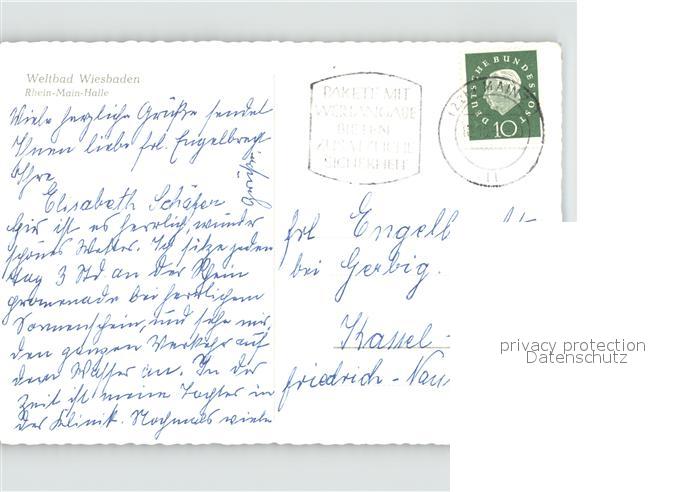 Weltbad Wiesbaden
Rhein-Main-Halle
Viele herzliche Grüße sendet
Ihnen liebe frl. Engelbrecht
Ihre
Elisabeth Schäfer
Hir ist es herrlich, wunder
schönes Wetter. Ich sitze jeden
tag 3 Std an der Rhein
promenade bei herrlichem
Sonnenschein, und sehe mir
den ganzen Verkehr auf
dem Wasser an. In der
Zeit ist meine Tochter in
der Klinik. Nochmals viele
Grüße
PAKETE MIT
WERTANGABE
BIETEN
ZUSÄTZLICHE
SICHERHEIT
DEUTSCHE BUNDESPOST
10
MAINZ
frl Engelb
bei Gerbig.
Kassel-
friedrich-Nau
privacy protection
Datenschutz